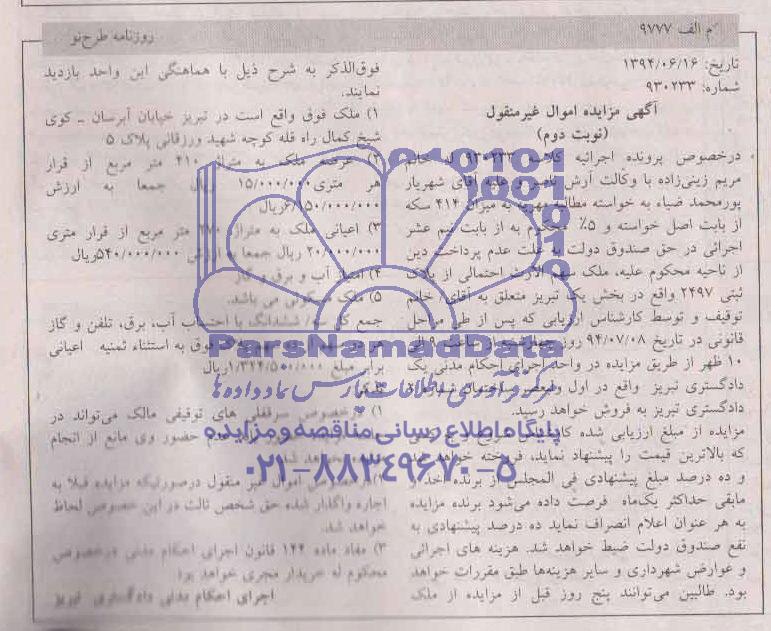 م الف ۹۷۷۷
روزنامه طرح‌نو
تاریخ: ۱۳۹۴/۰۶/۱۶
شماره: ۹۳۰۲۳۳
آگهی مزایده اموال غیرمنقول
(نوبت دوم)
درخصوص پرونده اجرائیه کلاسه ۹۳۰۲۳۳ له خانم
مریم زینی‌زاده با وکالت آرش ناصر و علیه آقای شهریار
پورمحمد ضیاء به خواسته مطالبه مهریه به میزان ۴۱۴ سکه
از بابت اصل خواسته و ۵٪ محکوم به از بابت نیم عشر
اجرائی در حق صندوق دولت به علت عدم پرداخت دین
از ناحیه محکوم علیه، ملک سهم الارث احتمالی از پلاک
ثبتی ۲۴۹۷ واقع در بخش یک تبریز متعلق به آقای/ خانم
توقیف و توسط کارشناس ارزیابی که پس از طی مراحل
قانونی در تاریخ ۹۴/۰۷/۰۸ روز چهارشنبه از ساعت ۹ الی
۱۰ ظهر از طریق مزایده در واحد اجرای احکام مدنی یک
دادگستری تبریز واقع در اول ولیعصر ساختمان شماره
دادگستری تبریز به فروش خواهد رسید.
مزایده از مبلغ ارزیابی شده کارشناسی شروع و به کسی
که بالاترین قیمت را پیشنهاد نماید، فروخته خواهد شد
و ده درصد مبلغ پیشنهادی فی المجلس از برنده اخذ و
مابقی حداکثر یک‌ماه فرصت داده می‌شود برنده مزایده
به هر عنوان اعلام انصراف نماید ده درصد پیشنهادی به
نفع صندوق دولت ضبط خواهد شد. هزینه های اجرائی
و عوارض شهرداری و سایر هزینه‌ها طبق مقررات خواهد
بود. طالبین می‌توانند پنج روز قبل از مزایده از ملک
فوق‌الذکر به شرح ذیل با هماهنگی این واحد بازدید
نمایند.
۱) ملک فوق واقع است در تبریز خیابان آبرسان ـ کوی
شیخ کمال راه قله کوچه شهید ورزقانی پلاک ۵
۲) عرصه ملک به متراژ ۴۱۰ متر مربع از قرار
هر متری ۱۵/۰۰۰/۰۰۰ ریال جمعا به ارزش
۶/۱۵۰/۰۰۰/۰۰۰ریال
۳) اعیانی ملک به متراژ ۲۷۰ متر مربع از قرار متری
۲/۰۰۰/۰۰۰ ریال جمعا به ارزش ۵۴۰/۰۰۰/۰۰۰ریال
۴) امتیاز آب و برق و گاز
۵) ملک مسکونی می باشد.
جمع کل ششدانگ با احتساب آب، برق، تلفن و گاز
فوق به استثناء ثمنیه اعیانی
برابر مبلغ ۱/۳۲۴/۵۰۰/۰۰۰ریال
۱) درخصوص سرقفلی های توقیفی مالک می‌تواند در
عدم حضور وی مانع از انجام
نخواهد شد.
۲) درخصوص اموال غیر منقول درصورتیکه مزایده قبلا به
اجاره واگذار شده حق شخص ثالث در این خصوص لحاظ
خواهد شد.
۳) مفاد ماده ۱۴۴ قانون اجرای احکام مدنی درخصوص
محکوم له خریدار مجری خواهد بود
اجرای احکام مدنی دادگستری تبریز
ParsNamadData
مرکز فرآوری اطلاعات پارس نماد داده‌ها
پایگاه اطلاع رسانی مناقصه و مزایده
۰۲۱-۸۸۳۴۹۶۷۰-۵